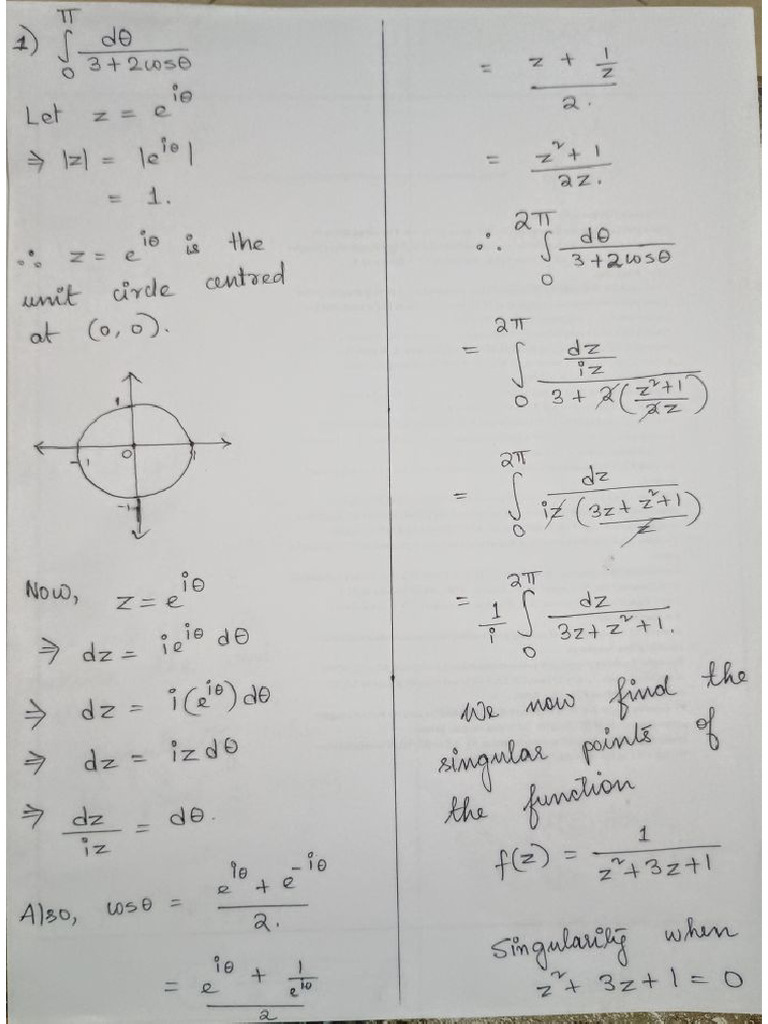 1) ∫₀^π dθ / (3 + 2cosθ)
Let z = e^{iθ}
⇒ |z| = |e^{iθ}|
= 1.
∴ z = e^{iθ} is the
unit circle centred
at (0, 0).
1
-1 0 1
-1
Now, z = e^{iθ}
⇒ dz = ie^{iθ} dθ
⇒ dz = i(e^{iθ}) dθ
⇒ dz = iz dθ
⇒ dz/iz = dθ.
Also, cosθ = (e^{iθ} + e^{-iθ}) / 2.
= (e^{iθ} + 1/e^{iθ}) / 2
= (z + 1/z) / 2.
= (z² + 1) / 2z.
∴ ∫₀^{2π} dθ / (3 + 2cosθ)
= ∫₀^{2π} (dz/iz) / (3 + 2((z² + 1)/2z))
= ∫₀^{2π} dz / (iz (3z + z² + 1)/z)
= 1/i ∫₀^{2π} dz / (3z + z² + 1).
We now find the
singular points of
the function
f(z) = 1 / (z² + 3z + 1)
Singularity when
z² + 3z + 1 = 0